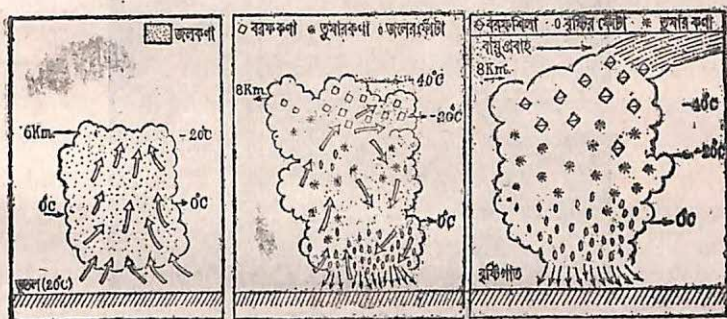 জলকণা
6Km.
-20°C
0°C
0°C
ভূতল (20°C)
বরফকণা তুষারকণা জলের ফোঁটা
8Km.
-40°C
-20°C
0°C
বরফশিলা বৃষ্টির ফোঁটা তুষার কণা
বায়ুপ্রবাহ
8Km.
-40°C
-20°C
0°C
বৃষ্টিপাত